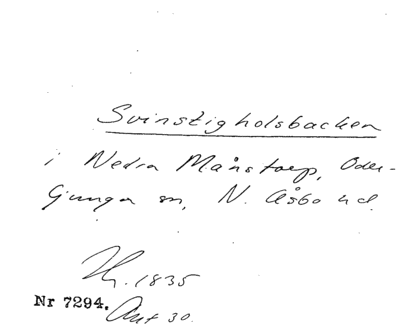 Svinstigholsbacken
i Nedra Månstorp, Oder-
ljunga sn, N. Åsbo hd.
1835
Nr 7294. Ant 30.